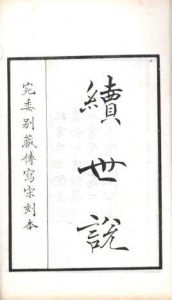 續世說
宛委別藏傳寫宋刻本